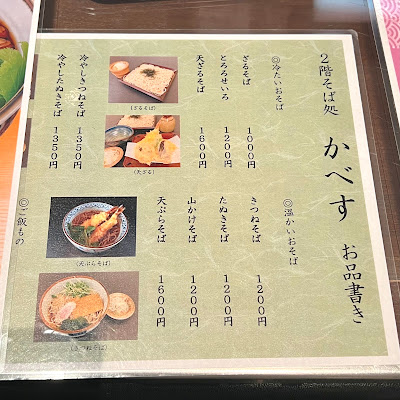 ２階そば処 かべす お品書き
◎冷たいおそば
ざるそば 1000円
とろろせいろ 1200円
天ざるそば 1600円
冷やしきつねそば 1350円
冷やしたぬきそば 1350円
(ざるそば)
(天ざる)
◎温かいおそば
きつねそば 1200円
たぬきそば 1200円
山かけそば 1200円
天ぷらそば 1600円
(天ぷらそば)
(きつねそば)
◎ご飯もの